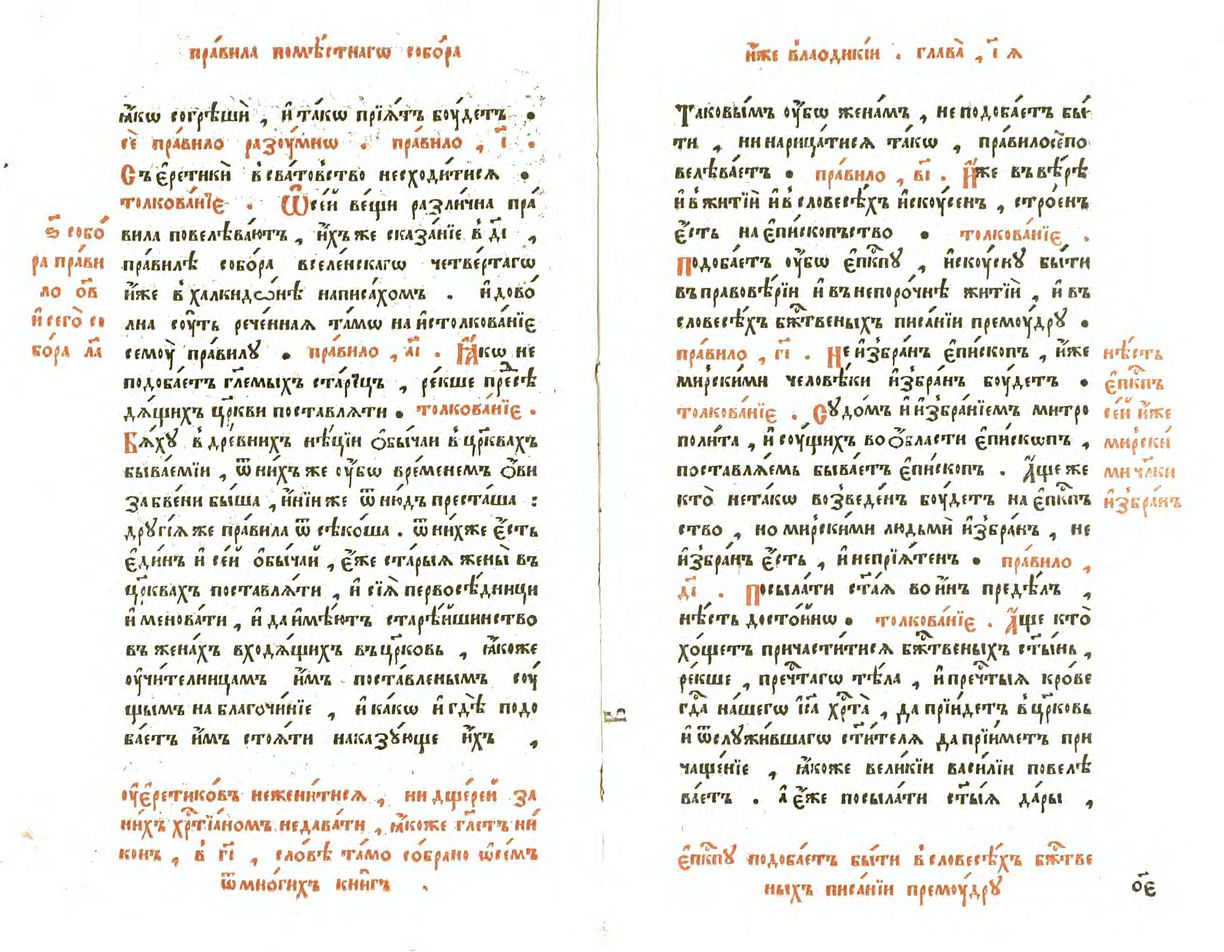 пра́вила помѣ́стнагѡ собо́ра
ꙗ҆́кѡ согрѣшѝ , и҆ та́кѡ прїѧ́тъ бѹ́детъ .
се҆̀ пра́вило разѹ́мнѡ . пра́вило , і҃ .
Съ є҆ретикѝ в сва́товство несходи́тисѧ .
толкова́нїе . Ѿ се́й ве́щи разли́чна пра́
вила повелѣва́ютъ , и҆́хъ же сказа́нїе в д҃і ,
пра́вилѣ собо́ра вселе́нскагѡ четве́ртагѡ
и҆́же в халкидѡ́нѣ написа́хомъ . и҆ дово́
лна сѹ́ть рече́ннаѧ та́мѡ на и҆столкова́нїе
семѹ̀ пра́вилꙋ . пра́вило , а҃і . Ꙗ҆́кѡ не
подоба́етъ гл҃емыхъ ста́рицъ , ре́кше пресѣ
дѧ́щихъ цр҃кви поставлѧ́ти . толкова́нїе .
Бѧ́хꙋ в дре́внихъ нѣ́цїи ѻ҆бы́чаи в цр҃квахъ
быва́емїи , ѿ ни́хъ же ѹ҆́бѡ вре́менемъ ѻ҆́ви
забве́ни бы́ша , и҆ні́и же ѿню́дъ преста́ша :
дрꙋгі́ѧ же пра́вила ѿсѣко́ша . ѿ ни́хже є҆́сть
є҆ди́нъ и҆ се́й ѻ҆бы́чаи , є҆́же ста́рыѧ жены̀ въ
цр҃квахъ поставлѧ́ти , и҆ сїѧ̀ первосѣ́дници
и҆менова́ти , и҆ да и҆мѣ́ютъ старѣ́йшинство
въ жена́хъ входѧ́щихъ въ цр҃ковь , ꙗ҆́коже
ѹ҆чи́телницамъ и҆́мъ поста́вленымъ сѹ́
щымъ на благочи́нїе , и҆ ка́кѡ и҆ гдѣ̀ подо
ба́етъ и҆́мъ стоѧ́ти наказꙋ́юще и҆́хъ ,
ѹ҆ є҆ретико́въ нежени́тисѧ , ни дще́рей за
ни́хъ хр҃тїа́номъ недава́ти , ꙗ҆́коже гл҃етъ ни́
конъ , в г҃і , сло́вѣ та́мо со́брано ѡ се́мъ
ѿ мно́гихъ кни́гъ .
ѕ҃ собо́
ра пра́ви
ло ѻ҃в
и҆ сегѡ̀ со
бо́ра л҃а
и҆́же в лаодикі́и . глава̀ , і҃ ѧ
Таковы́мъ ѹ҆́бѡ жена́мъ , не подоба́етъ бы́
ти , ни нарица́тисѧ та́кѡ , пра́вило сѐ по
велѣва́етъ . пра́вило , в҃і . И҆́же въ вѣ́рѣ
и҆ в житїѝ и҆ в словесѣ́хъ и҆скѹ́сенъ , стро́енъ
є҆́сть на є҆пи́скопъство . толкова́нїе .
Подоба́етъ ѹ҆́бѡ є҆п҃кпꙋ , и҆скѹ́снꙋ бы́ти
въ правовѣ́рїи и҆ въ непоро́чнѣ житїѝ , и҆ въ
словесѣ́хъ бж҃твеныхъ писа́нїи премѹ́дрꙋ .
пра́вило , г҃і . Не и҆збра́нъ є҆пи́скопъ , и҆́же
мирски́ми человѣ́ки и҆збра́нъ бѹ́детъ .
толкова́нїе . Сꙋдо́мъ и҆ и҆збра́нїемъ митро
поли́та , и҆ сѹ́щихъ во ѻ҆́бласти є҆пи́скѡпъ ,
поставлѧ́емь быва́етъ є҆пи́скопъ . А҆́ще же
кто̀ нета́кѡ возведе́нъ бѹ́детъ на є҆п҃кпъ
ство , но мирски́ми людьмѝ и҆збра́нъ , не
и҆збра́нъ є҆́сть , и҆ непрїѧ́тенъ . пра́вило ,
д҃і . Посыла́ти ст҃а́ѧ во и҆́нъ предѣ́лъ ,
нѣ́сть досто́йнѡ . толкова́нїе . А҆́ще кто̀
хо́щетъ причасти́тисѧ бж҃твеныхъ ст҃ы́нь ,
ре́кше , преч҃тагѡ тѣ́ла , и҆ преч҃тыѧ кро́ве
гд҃а на́шегѡ і҆с҃а хр҃та̀ , да прїи́детъ в цр҃ковь
и҆ ѿслꙋжи́вшагѡ ст҃и́телѧ да прїи́метъ при
чаще́нїе , ꙗ҆́коже вели́кїи васи́лїи повелѣ
ва́етъ . а҆ є҆́же посыла́ти ст҃ы́ѧ да́ры ,
є҆п҃кпꙋ подоба́етъ бы́ти в словесѣ́хъ бж҃тве
ныхъ писа́нїи премѹ́дрꙋ
нѣ́сть
є҆п҃кпъ
се́й и҆́же
мирски́
ми чл҃ки
и҆збра́нъ
ѻ҃є